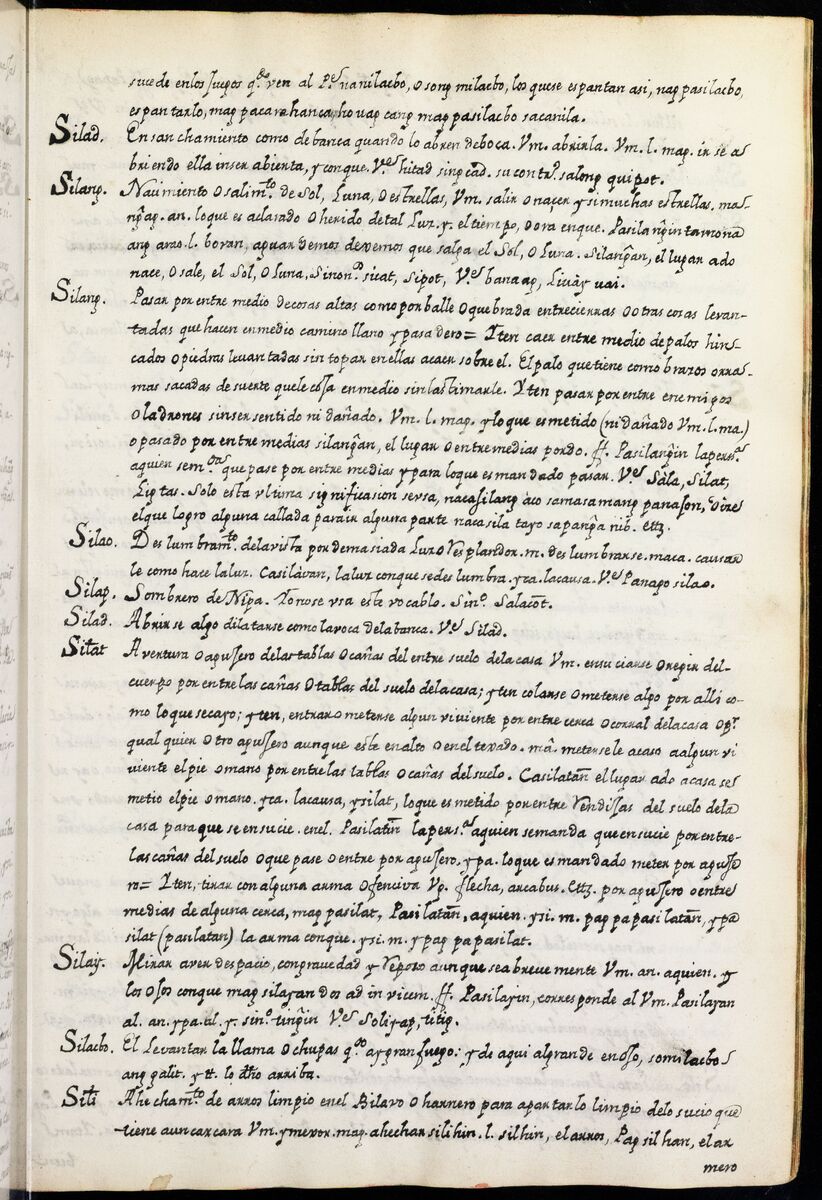 sucede en los fuegos q.do ven al P.e nanilacbo, o song milacbo, los que se espantan asi, nag pasilacbo,
espantarlo, mag pacarahan caho uag cang mag pasilacbo sa canila.
Silad. Ensanchamiento como de banca quando lo abren de boca. Vm. abrirla. Vm. l. mag. ir se a
briendo ella inser abierta, y con que. V.e hitad sing cad. su contr.o salong quipot.
Silang. Naçimiento o salim.to de Sol, Luna, o estrellas, Vm. salir o naçer y si muchas estrellas. mag
ng̃ag. an. lo que es aclarado o herido de tal Luz. y. el tiempo, o ora en que. Pasilang̃in ta mona
ang arao. l. bovan, aguardemos dexemos que salga el Sol, o Luna. Silang̃an, el lugar ado
nace, o sale, el Sol, o Luna, Sinon.o sicat, Sipot, V.e banaag,
Silang. Pasar por entre medio de cosas altas como por balle o quebrada entre cierras o otras cosas levan-
tadas que hacen en medio camino llano y pasadero = Yten caer entre medio de palos hin-
cados o piedras levantadas sin topar en ellas a caer sobre el. El palo que tiene como brazos o rra-
mas sacadas de suerte que le coja en medio sin lastimarle. Yten pasar por entre enemigos
o ladrones sin ser sentido ni dañado. Vm. l. mag. y lo que es metido (ni dañado Vm. l. ma.)
o pasado por entre medias silang̃an, el lugar o entre medias por do. ff. Pasilang̃in la pers.a
a quien se m.da que pase por entre medias y para lo que es mandado pasar. V.e Sala, Silat,
Ligtas. Solo esta vltima significasion se vsa, nacasilang aco sa masamang panahon, dire
el que logro alguna callada para ir alguna parte nacasila tayo sa pang̃anib. etz.
Silao. Deslumbram.to de la vista por demasiada Luz o Resplandor. m. deslumbrarse. maca. causar
le como hace la luz. Casilavan, la luz con que se deslumbra. yca. la causa. V.e Panago silao.
Silap. Sombrero de Nipa. Yo no se vsa este vocablo. Sin.o Salacot.
Silad. Abrirse algo dilatarse como la voca de la banca. V.e Silad.
Silat Avertura o agujero de las tablas o cañas del entre suelo de la casa Vm. ensuciarse o regir del
cuerpo por entre las cañas o tablas del suelo de la casa; yten colarse o meterse algo por alli co-
mo lo que se cayo; yten, entrar o meterse algun viviente por entre cerca o corral de la casa o p.r
qual quier otro agujero aunque este en alto o en el texado. ma. metersele acaso a algun vi
viente el pie o mano por entre las tablas o cañas del suelo. Casilatan el lugar ado acaso se
metio el pie o mano. yca. la causa, y silat, lo que es metido por entre Rendijas del suelo de la
casa para que se ensucie. en el. Pasilatin la pers.a a quien se manda que ensucie por entre
las cañas del suelo o que pase o entre por agujero, y pa. lo que es mandado meter por aguje
ro = Yten, tirar con alguna arma ofenciva Vg. flecha, arcabus. etz. por agujero o entre
medias de alguna cerca, mag pasilat, Pasilatan, a quien. y si. m. pag papasilatan, ypa
silat (pasilatan) la arma con que. y si. m. y pag papasilat.
Silay. Mirar a ver despacio, con gravedad y Reposo aunque sea brevemente Vm. an. a quien. y
los ojos con que mag silayan dos ad in vicem. ff. Pasilayin, corresponde al Vm. Pasilayan
al. an. y pa. al. y. sin.o ting̃in V.e Soliyap, titig.
Silacbo. El Levantar la llama o chupas q.do ay gran fuego: y de aqui al grande enojo, somilacbo
ang galit. y tt. lo dho arriba.
Sili Ahecham.to de arros limpio en el Bilavo o harnero para apartar lo limpio de lo sucio que
tiene aun carcara Vm. y mexor. mag. ahechar silihin. l. silhin, el arros, Pag silhan, el ar
mero